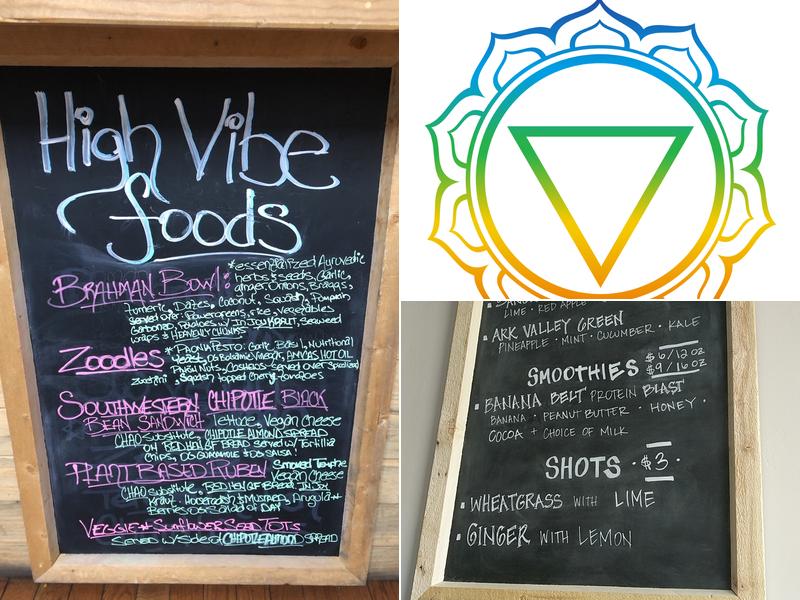 High Vibe
foods
BRAHMAN BOWL: *essentialized Ayurvedic
herbs & seeds, Garlic,
ginger, Onions, Braggs,
Tumeric, Dates, Coconut, Squash, Pumpkin
served over: Powergreens, rice, vegetables
Potatoes w/ IN JOY KRAUT, Seaweed
wraps & HEAVENLY
Zoodles * Garlic, Basil, Nutritional
yeast, Balsamic Vinegar, HOT OIL
Nuts, served over Spiralized
Zucchini, Squash topped Cherry tomatoes
SOUTHWESTERN CHIPOTLE BLACK
BEAN SANDWICH lettuce, Vegan Cheese
CHAO substitute, CHIPOTLE ALMOND SPREAD
ON RED HEN GF BREAD served w/ Tortilla
Chips, OS GUAMAME & OS SALSA!
PLANT BASED RUBEN Smoked Temphe
Vegan Cheese
CHAO substitute, RED HEN GF BREAD, IN JOY
Kraut, Horseradish & Mustard, Arugula &
Berries OS Salad of DAY
VEGGIE & Sunflower SEED TOTS
SERVED W/ Side of CHIPOTLE ALMOND SPREAD
LIME · RED APPLE
ARK VALLEY GREEN
PINEAPPLE · MINT · CUCUMBER · KALE
SMOOTHIES $6/12 oz
$9/16 oz
BANANA BELT PROTEIN BLAST
BANANA · PEANUT BUTTER · HONEY ·
COCOA + CHOICE OF MILK
SHOTS · $3 ·
WHEATGRASS WITH LIME
GINGER WITH LEMON